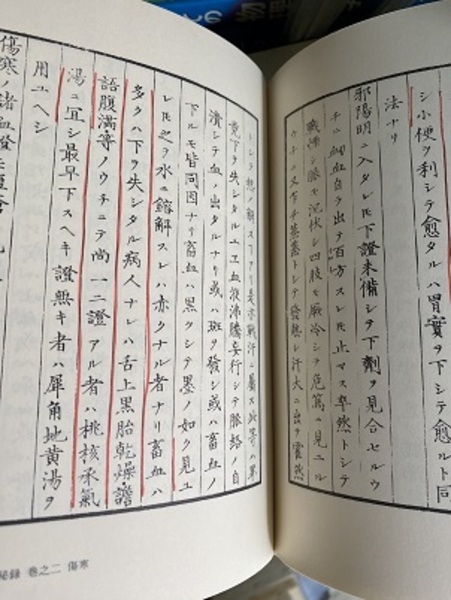 シ小便ヲ利シテ愈タルハ胃實ヲ下シテ愈ルト同
法ナリ
邪陽明ニ入タレ𪜈下證未備シテ下劑ヲ見合セルウ
チニ衂血自ラ出テ百方スレ𪜈止マス卒然トシテ
戰慄シ脉モ沈伏シ四肢モ厥冷シテ危篤ニ見ユル
ウチノ又下チ蒸蒸トシテ發熱シ汗大ニ出テ霍然
トシテ愈ノ解スアリ是亦戰汗ニ屬ス此等ハ畢
竟下ヲ失シタルユエ血液沸騰妄行シテ脈絡ノ自
潰シテ血ノ出タルナリ或ハ斑ヲ發シ或ハ畜血ノ
下ルモ皆同因ナリ畜血ハ黒クシテ墨ノ如ク見ユ
レ𪜈之ヲ水ニ鎔解スレハ赤クナル者ナリ畜血ハ
多クハ下ヲ失シタル病人ナレハ舌上黒胎乾燥譫
語腹滿等ノウチニテ尚一二證アル者ハ桃核承氣
湯ニ宜シ最早下スヘキ證無キ者ハ犀角地黄湯ヲ
用ユヘシ
傷寒ノ諸血證
秘録 巻之二 傷寒